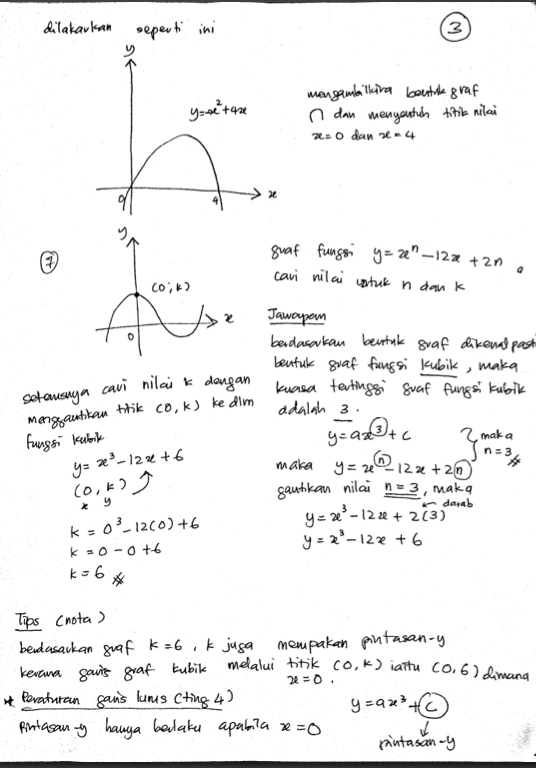 dilakarkan seperti ini
3
y
y=-x²+4x
0
4
x
mengambilkira bentuk graf
∩ dan menyentuh titik nilai
x=0 dan x=4
7
y
(0,k)
x
0
graf fungsi y=xⁿ-12x+2n.
cari nilai untuk n dan k
Jawapan
berdasarkan bentuk graf dikenalpasti
bentuk graf fungsi kubik, maka
kuasa tertinggi graf fungsi kubik
adalah 3.
y=ax³+c } maka n=3
maka y=xⁿ-12x+2n
gantikan nilai n=3, maka
darab
y=x³-12x+2(3)
y=x³-12x+6
seterusnya cari nilai k dengan
menggantikan titik (0,k) ke dlm
fungsi kubik
y=x³-12x+6
(0,k)
x y
k=0³-12(0)+6
k=0-0+6
k=6
Tips (nota)
berdasarkan graf k=6, k juga merupakan pintasan-y
kerana garis graf kubik melalui titik (0,k) iaitu (0,6) dimana
x=0.
* Peraturan garis lurus (ting 4)
Pintasan-y hanya berlaku apabila x=0
y=ax³+c
pintasan-y